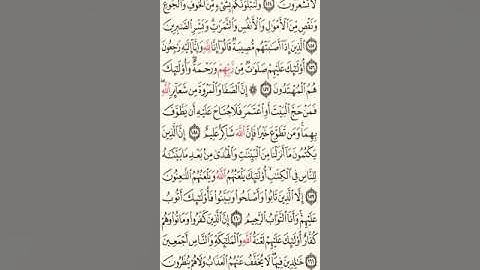 لَا تَشْعُرُونَ ١٥٤ وَلَنَبْلُوَنَّكُم بِشَيْءٍ مِّنَ الْخَوْفِ وَالْجُوعِ
وَنَقْصٍ مِّنَ الْأَمْوَالِ وَالْأَنفُسِ وَالثَّمَرَاتِ وَبَشِّرِ الصَّابِرِينَ
١٥٥ الَّذِينَ إِذَا أَصَابَتْهُم مُّصِيبَةٌ قَالُوا إِنَّا لِلَّهِ وَإِنَّا إِلَيْهِ رَاجِعُونَ
١٥٦ أُولَٰئِكَ عَلَيْهِمْ صَلَوَاتٌ مِّن رَّبِّهِمْ وَرَحْمَةٌ وَأُولَٰئِكَ
هُمُ الْمُهْتَدُونَ ١٥٧ ۞ إِنَّ الصَّفَا وَالْمَرْوَةَ مِن شَعَائِرِ اللَّهِ
فَمَنْ حَجَّ الْبَيْتَ أَوِ اعْتَمَرَ فَلَا جُنَاحَ عَلَيْهِ أَن يَطَّوَّفَ
بِهِمَا وَمَن تَطَوَّعَ خَيْرًا فَإِنَّ اللَّهَ شَاكِرٌ عَلِيمٌ ١٥٨ إِنَّ الَّذِينَ
يَكْتُمُونَ مَا أَنزَلْنَا مِنَ الْبَيِّنَاتِ وَالْهُدَىٰ مِن بَعْدِ مَا بَيَّنَّاهُ
لِلنَّاسِ فِي الْكِتَابِ أُولَٰئِكَ يَلْعَنُهُمُ اللَّهُ وَيَلْعَنُهُمُ اللَّاعِنُونَ
١٥٩ إِلَّا الَّذِينَ تَابُوا وَأَصْلَحُوا وَبَيَّنُوا فَأُولَٰئِكَ أَتُوبُ
عَلَيْهِمْ وَأَنَا التَّوَّابُ الرَّحِيمُ ١٦٠ إِنَّ الَّذِينَ كَفَرُوا وَمَاتُوا وَهُمْ
كُفَّارٌ أُولَٰئِكَ عَلَيْهِمْ لَعْنَةُ اللَّهِ وَالْمَلَائِكَةِ وَالنَّاسِ أَجْمَعِينَ
١٦١ خَالِدِينَ فِيهَا لَا يُخَفَّفُ عَنْهُمُ الْعَذَابُ وَلَا هُمْ يُنظَرُونَ